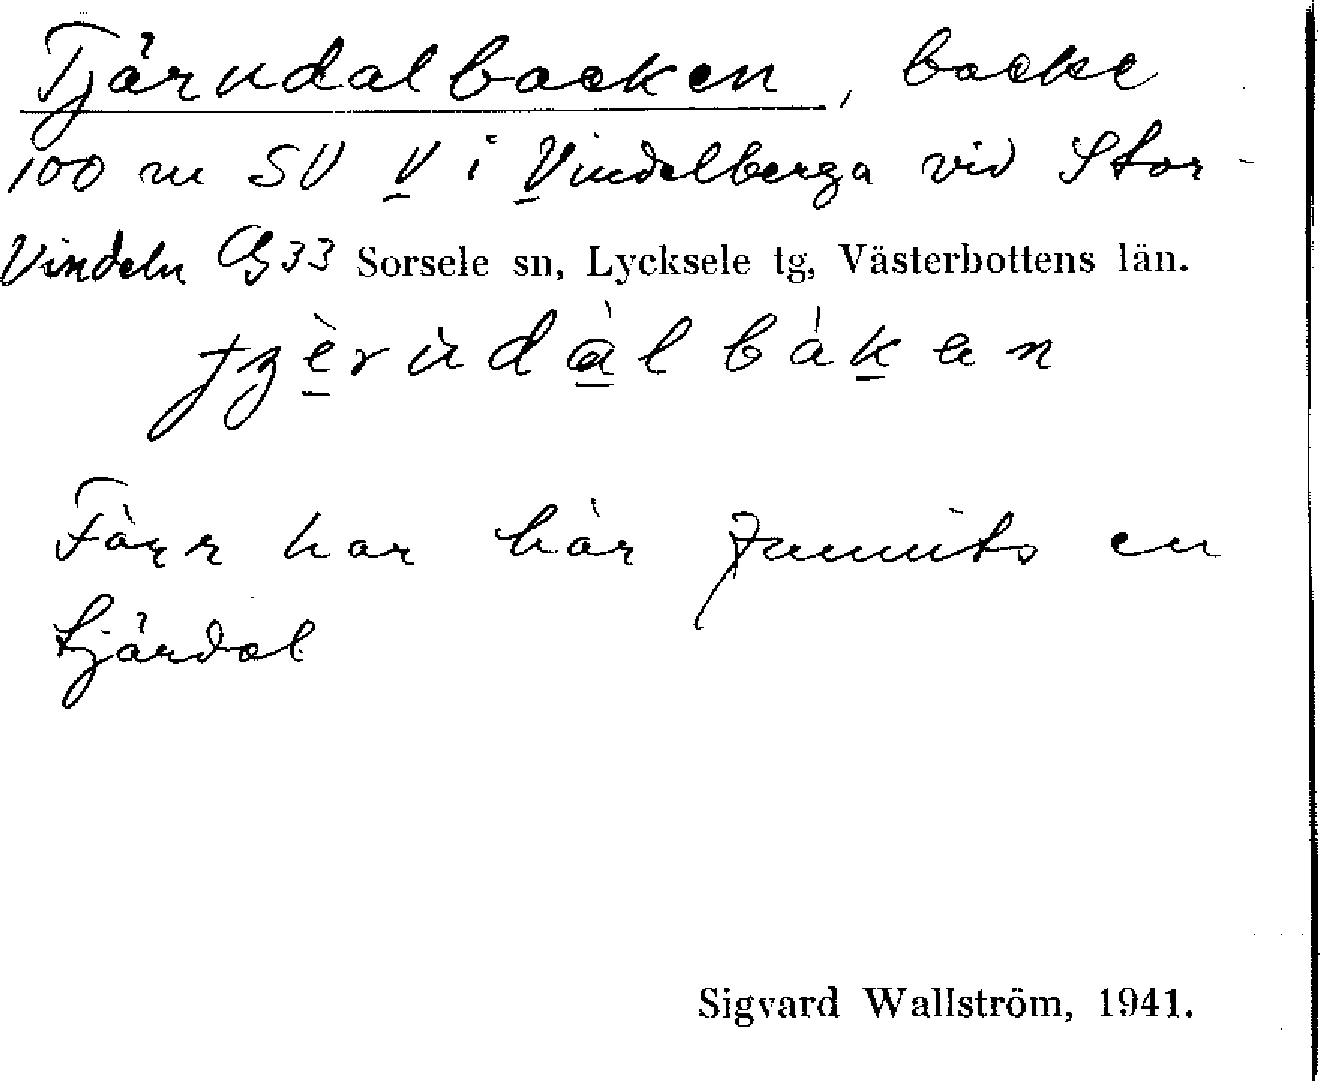 Tjärudalbacken, backe
100 m SV V i Vindelberga vid Stor-
Vindeln 33 Sorsele sn, Lycksele tg, Västerbottens län.
Förr har här funnits en
tjärdal
Sigvard Wallström, 1941.